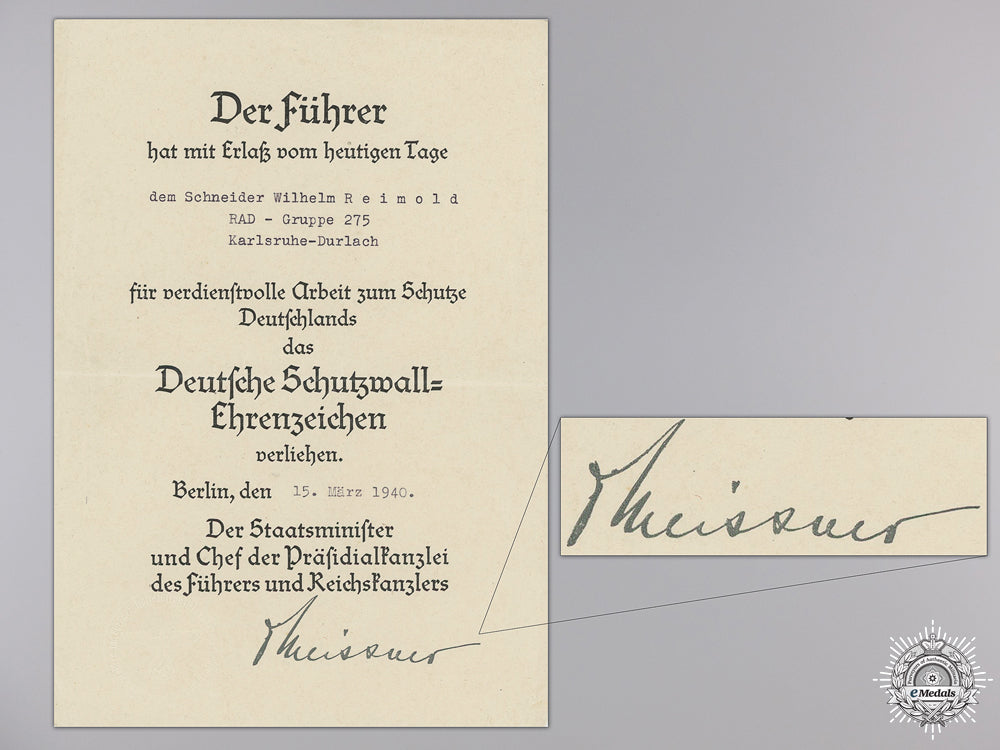 Der Führer
hat mit Erlaß vom heutigen Tage
dem Schneider Wilhelm R e i m o l d
RAD - Gruppe 275
Karlsruhe-Durlach
für verdienstvolle Arbeit zum Schutze
Deutschlands
das
Deutsche Schutzwall=
Ehrenzeichen
verliehen.
Berlin, den 15. März 1940.
Der Staatsminister
und Chef der Präsidialkanzlei
des Führers und Reichskanzlers
Meissner
Meissner
eMedals